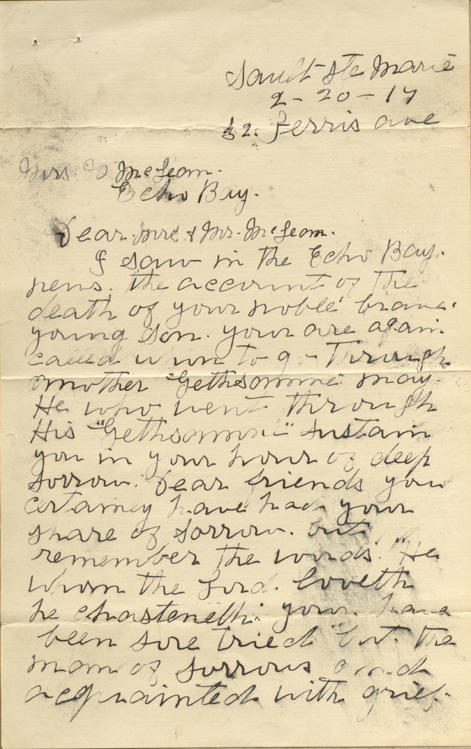 Sault Ste Marie
2-20-17
62. Ferris ave
Mrs. D McLeam.
Echo Bay.
Dear Mrs & Mr. McLeam.
I saw in the Echo Bay.
nens. the account of the
death of your noble brave
young son. your are again
called upon to go through
another Gethsamine may.
He who went through
His "Gethsamine" sustain
you in your hour of deep
sorrow. Dear friends you
certainey have had your
share of sorrow. but
remember the words. "He
whom the Lord. loveth
he chasteneth. your. have
been sore tried but. the
man of sorrows and
acquainted with grief.